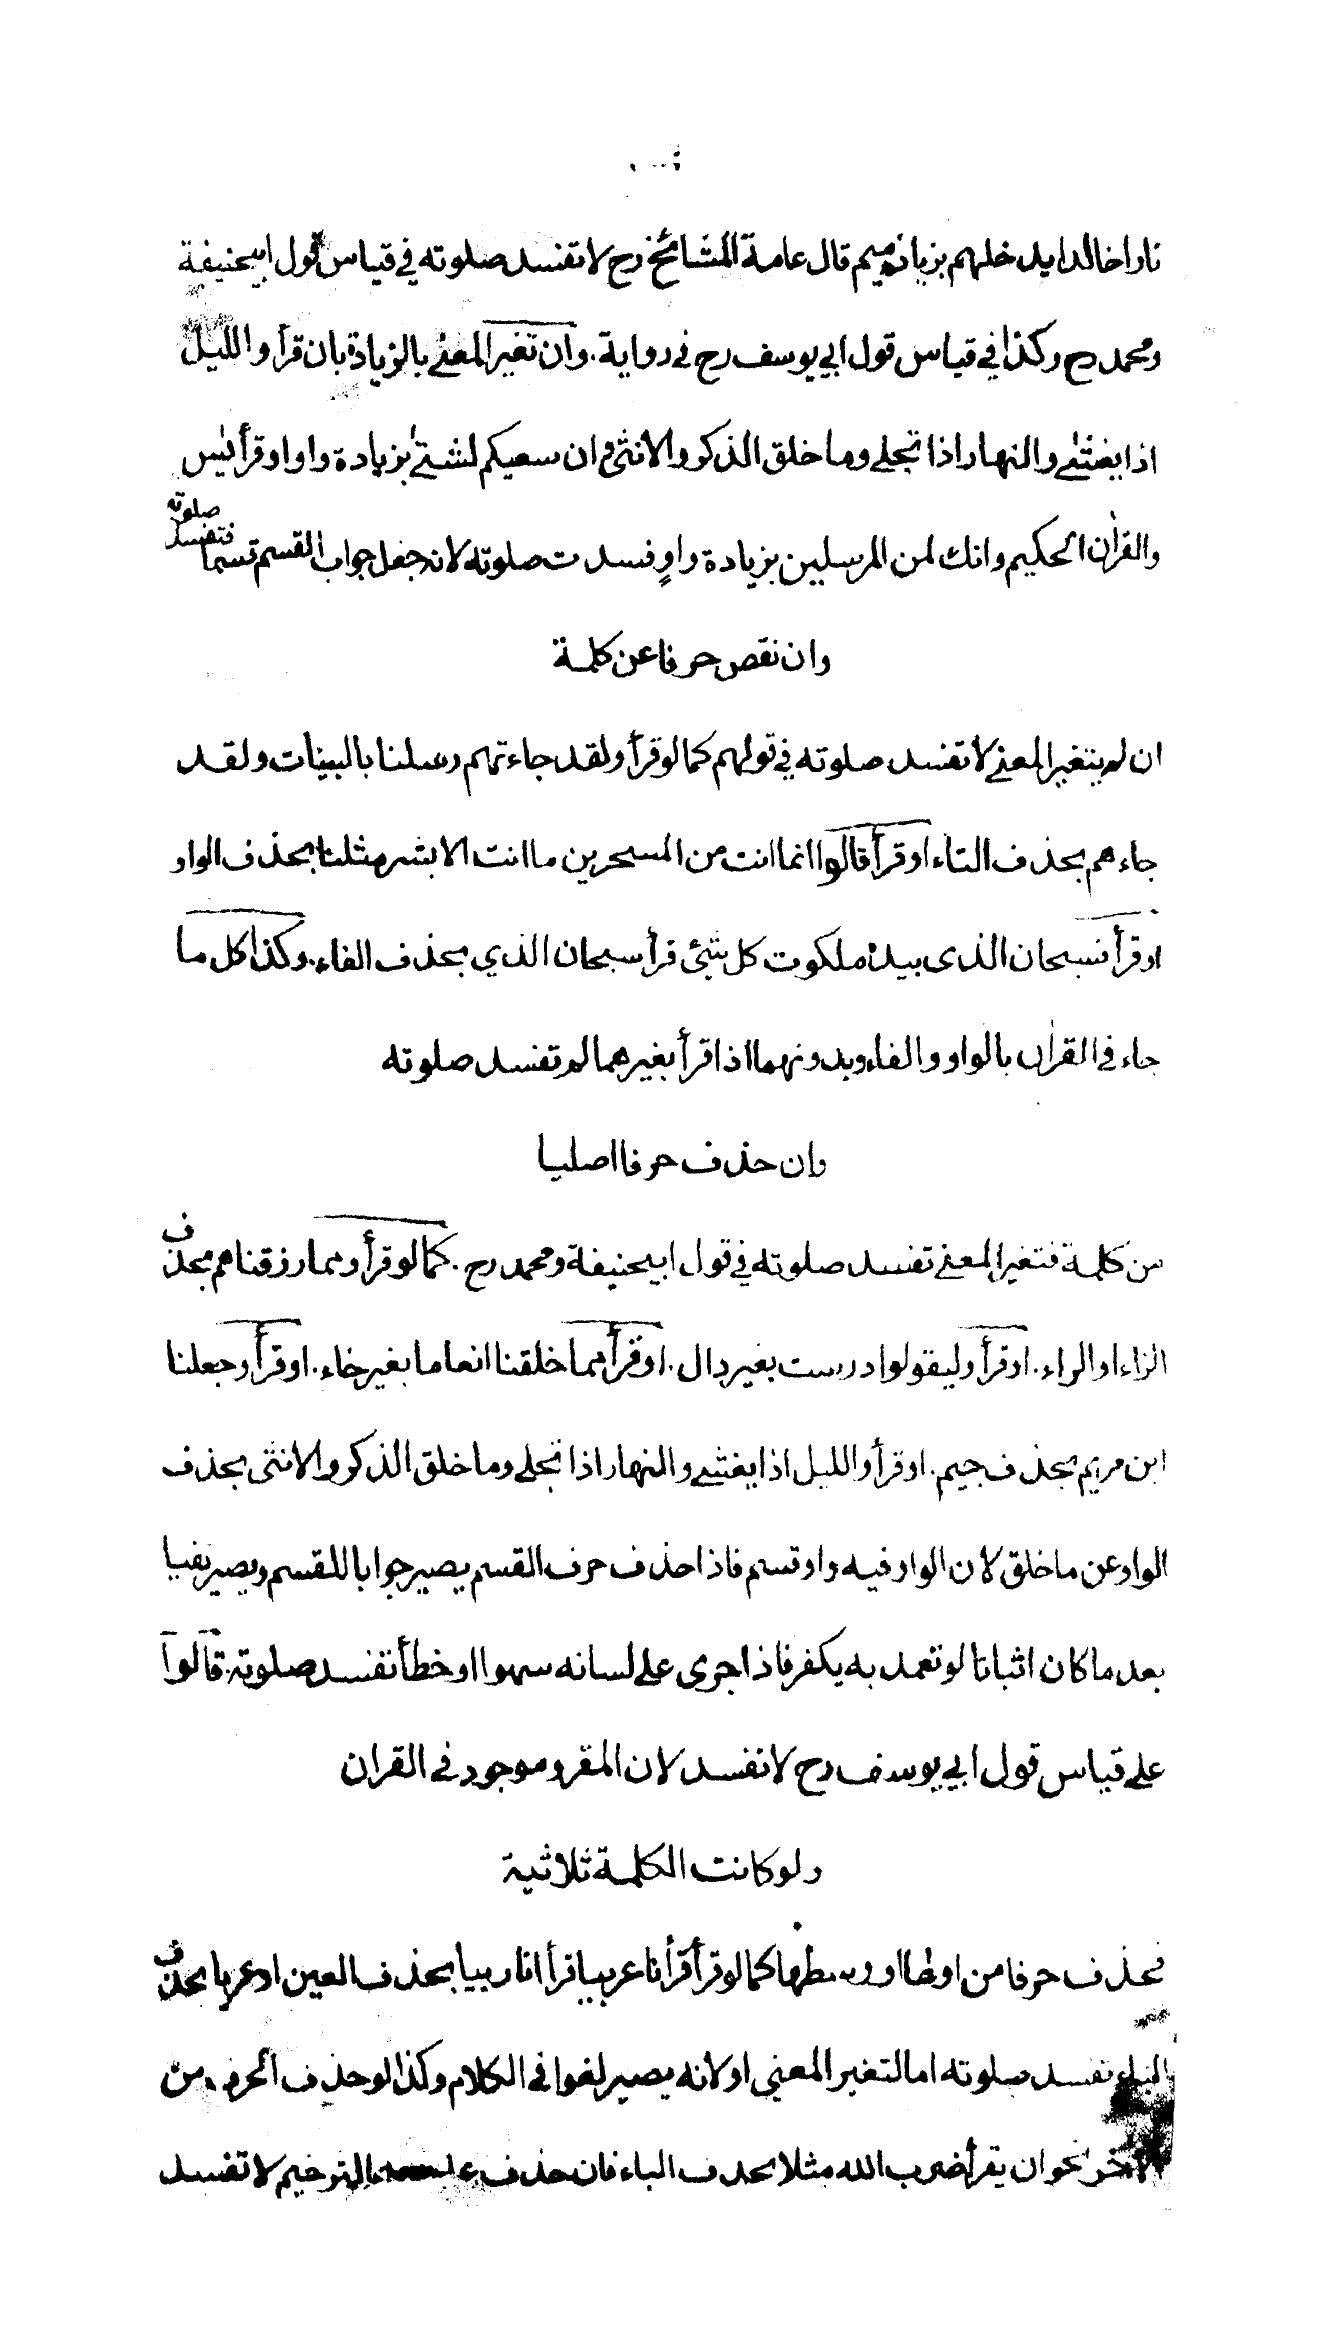 نارا خالدا يدخلهم بزيادة ميم قال عامة المشائخ رح لا تفسد صلوته في قياس قول ابيحنيفة
ومحمد رح وكذا في قياس قول ابي يوسف رح في رواية . وان تغير المعنى بالزيادة بان قرأ والليل
اذا يغشى والنهار اذا تجلى وما خلق الذكر والانثى وان سعيكم لشتى بزيادة واو او قرأ يس
والقرآن الحكيم وانك لمن المرسلين بزيادة واو فسدت صلوته لانه جعل جواب القسم قسما فتفسد صلوته
وان نقص حرفا عن كلمة
ان لم يتغير المعنى لا تفسد صلوته في قولهم كما لو قرأ ولقد جاءتهم رسلنا بالبينات ولقد
جاءهم بحذف التاء او قرأ قالوا انما انت من المسحرين ما انت الا بشر مثلنا بحذف الواو
او قرأ فسبحان الذى بيده ملكوت كل شئ قرأ سبحان الذي بحذف الفاء . وكذا كل ما
جاء في القرآن بالواو والفاء وبدونهما اذا قرأ بغيرهما لم تفسد صلوته
وان حذف حرفا اصليا
من كلمة فتغير المعنى تفسد صلوته في قول ابيحنيفة ومحمد رح . كما لو قرأ ومما رزقناهم بحذف
الزاء او الراء . او قرأ وليقولوا درست بغير دال . او قرأ مما خلقنا انعاما بغير خاء . او قرأ وجعلنا
ابن مريم بحذف جيم . او قرأ والليل اذا يغشى والنهار اذا تجلى وما خلق الذكر والانثى بحذف
الواو عن ما خلق لان الواو فيه واو قسم فاذا حذف حرف القسم يصير جوابا للقسم ويصير نفيا
بعد ما كان اثباتا لو تعمد به يكفر فاذا جرى على لسانه سهوا او خطأ تفسد صلوته . قالوا
على قياس قول ابي يوسف رح لا تفسد لان المقرو موجود في القرآن
ولو كانت الكلمة ثلاثية
فحذف حرفا من اولها او وسطها كما لو قرأ قرأنا عربيا قرأ انا ربيا بحذف العين او عربا بحذف
الياء تفسد صلوته اما لتغير المعنى او لانه يصير لغوا في الكلام وكذا لو حذف الحرف من
الآخر نحو ان يقرأ ضرب الله مثلا بحذف الباء فان حذف الترخيم لا تفسد